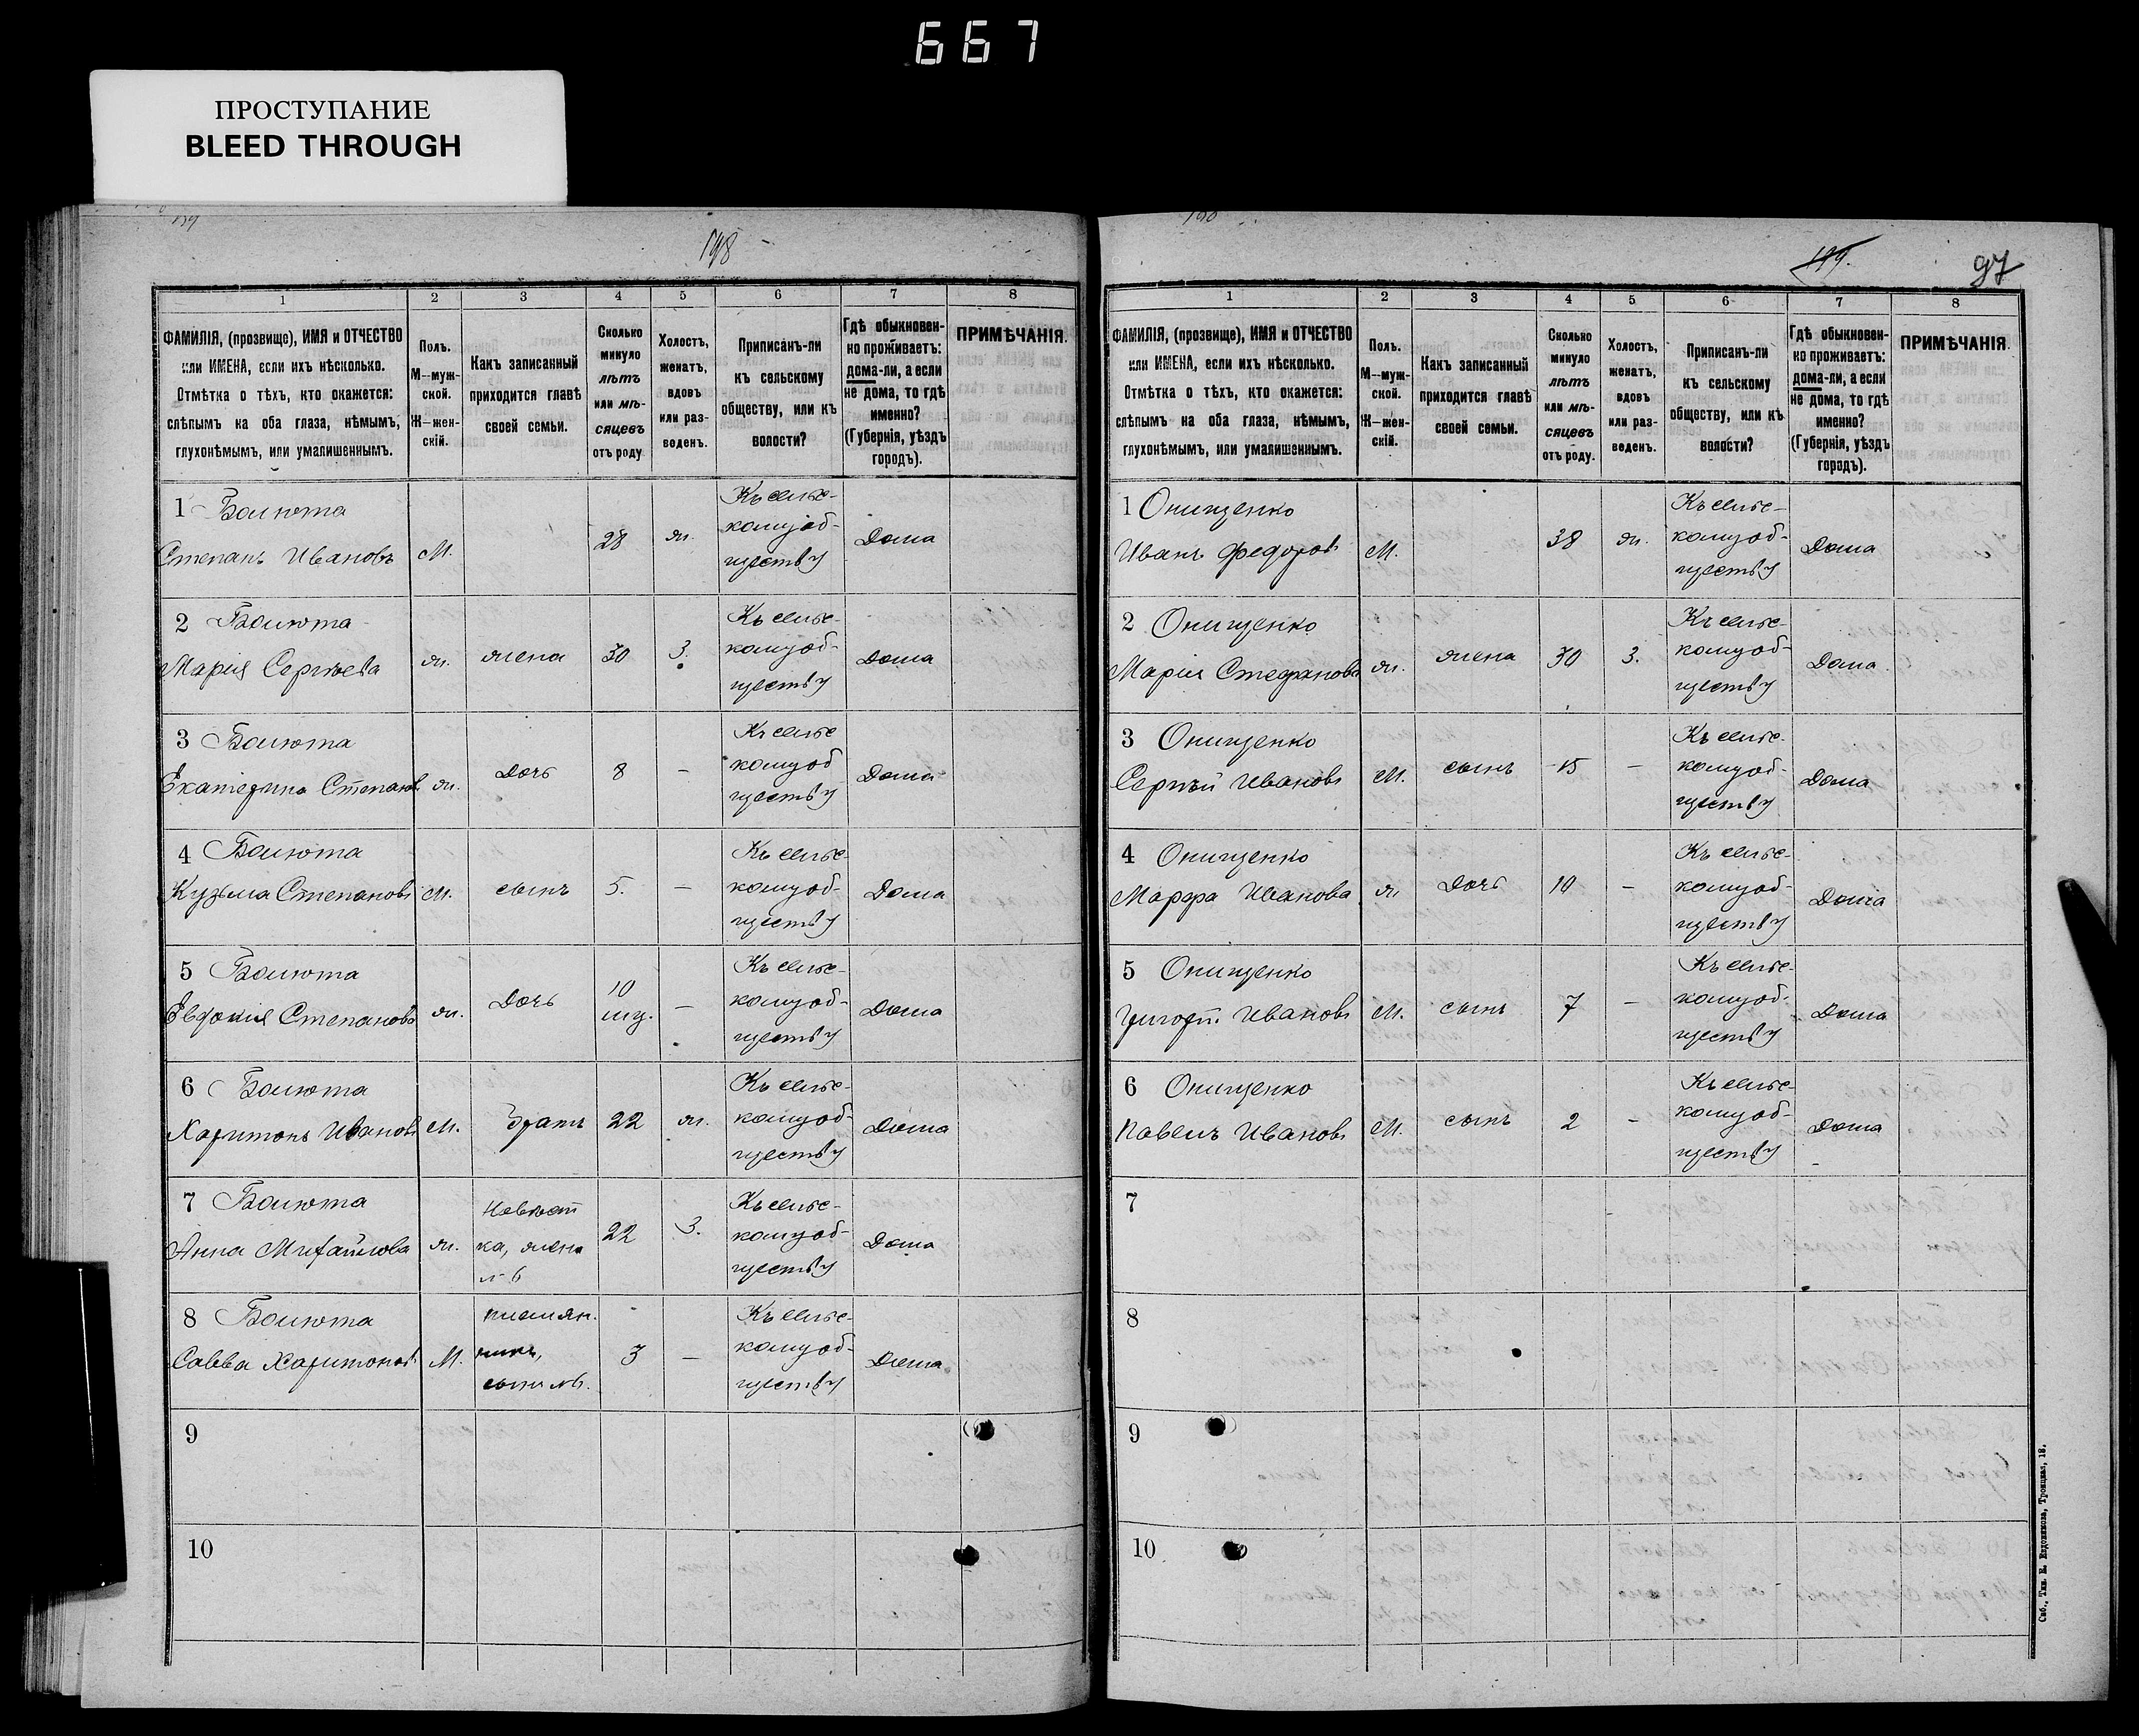 667
ПРОСТУПАНИЕ
BLEED THROUGH
198
1 2 3 4 5 6 7 8
ФАМИЛІЯ, (прозвище), ИМЯ и ОТЧЕСТВО или ИМЕНА, если ихъ нѣсколько. Отмѣтка о тѣхъ, кто окажется: слѣпымъ на оба глаза, нѣмымъ, глухонѣмымъ, или умалишеннымъ.
Полъ. М—мужской. Ж—женскій.
Какъ записанный приходится главѣ своей семьи.
Сколько минуло лѣтъ или мѣсяцевъ отъ роду
Холостъ, женатъ, вдовъ или разведенъ.
Приписанъ-ли къ сельскому обществу, или къ волости?
Гдѣ обыкновенно проживаетъ: дома-ли, а если не дома, то гдѣ именно? (Губернія, уѣздъ городъ).
ПРИМѢЧАНІЯ.
1 Болюта Степанъ Ивановъ М. 28 ж. Къ сельскому обществу Дома
2 Болюта Марія Сергѣева ж. жена 30 З. Къ сельскому обществу Дома
3 Болюта Екатерина Степанов ж. Дочь 8 — Къ сельскому обществу Дома
4 Болюта Кузьма Степановъ М. сынъ 5. — Къ сельскому обществу Дома
5 Болюта Евдокия Степанова ж. Дочь 10 мц. — Къ сельскому обществу Дома
6 Болюта Харитонъ Ивановъ М. Братъ 22 ж. Къ сельскому обществу Дома
7 Болюта Анна Михайлова ж. Невѣстка, жена №6 22 З. Къ сельскому обществу Дома
8 Болюта Савва Харитоновъ М. племянникъ, сынъ №6. 3 — Къ сельскому обществу Дома
9
10
199.
97
1 2 3 4 5 6 7 8
ФАМИЛІЯ, (прозвище), ИМЯ и ОТЧЕСТВО или ИМЕНА, если ихъ нѣсколько. Отмѣтка о тѣхъ, кто окажется: слѣпымъ на оба глаза, нѣмымъ, глухонѣмымъ, или умалишеннымъ.
Полъ. М—мужской. Ж—женскій.
Какъ записанный приходится главѣ своей семьи.
Сколько минуло лѣтъ или мѣсяцевъ отъ роду.
Холостъ, женатъ, вдовъ или разведенъ.
Приписанъ-ли къ сельскому обществу, или къ волости?
Гдѣ обыкновенно проживаетъ: дома-ли, а если не дома, то гдѣ именно? (Губернія, уѣздъ городъ).
ПРИМѢЧАНІЯ.
1 Онищенко Иванъ Федоровъ М. 38 ж. Къ сельскому обществу Дома
2 Онищенко Марія Стефанова ж. жена 30 З. Къ сельскому обществу Дома
3 Онищенко Сергѣй Ивановъ М. сынъ 15 — Къ сельскому обществу Дома
4 Онищенко Марфа Иванова ж Дочь 10 — Къ сельскому обществу Дома
5 Онищенко Григорій Ивановъ М. сынъ 7 — Къ сельскому обществу Дома
6 Онищенко Павелъ Ивановъ М. сынъ 2 — Къ сельскому обществу Дома
7
8
9
10
Спб., Тип. Е. Евдокимова, Троицкая, 18.